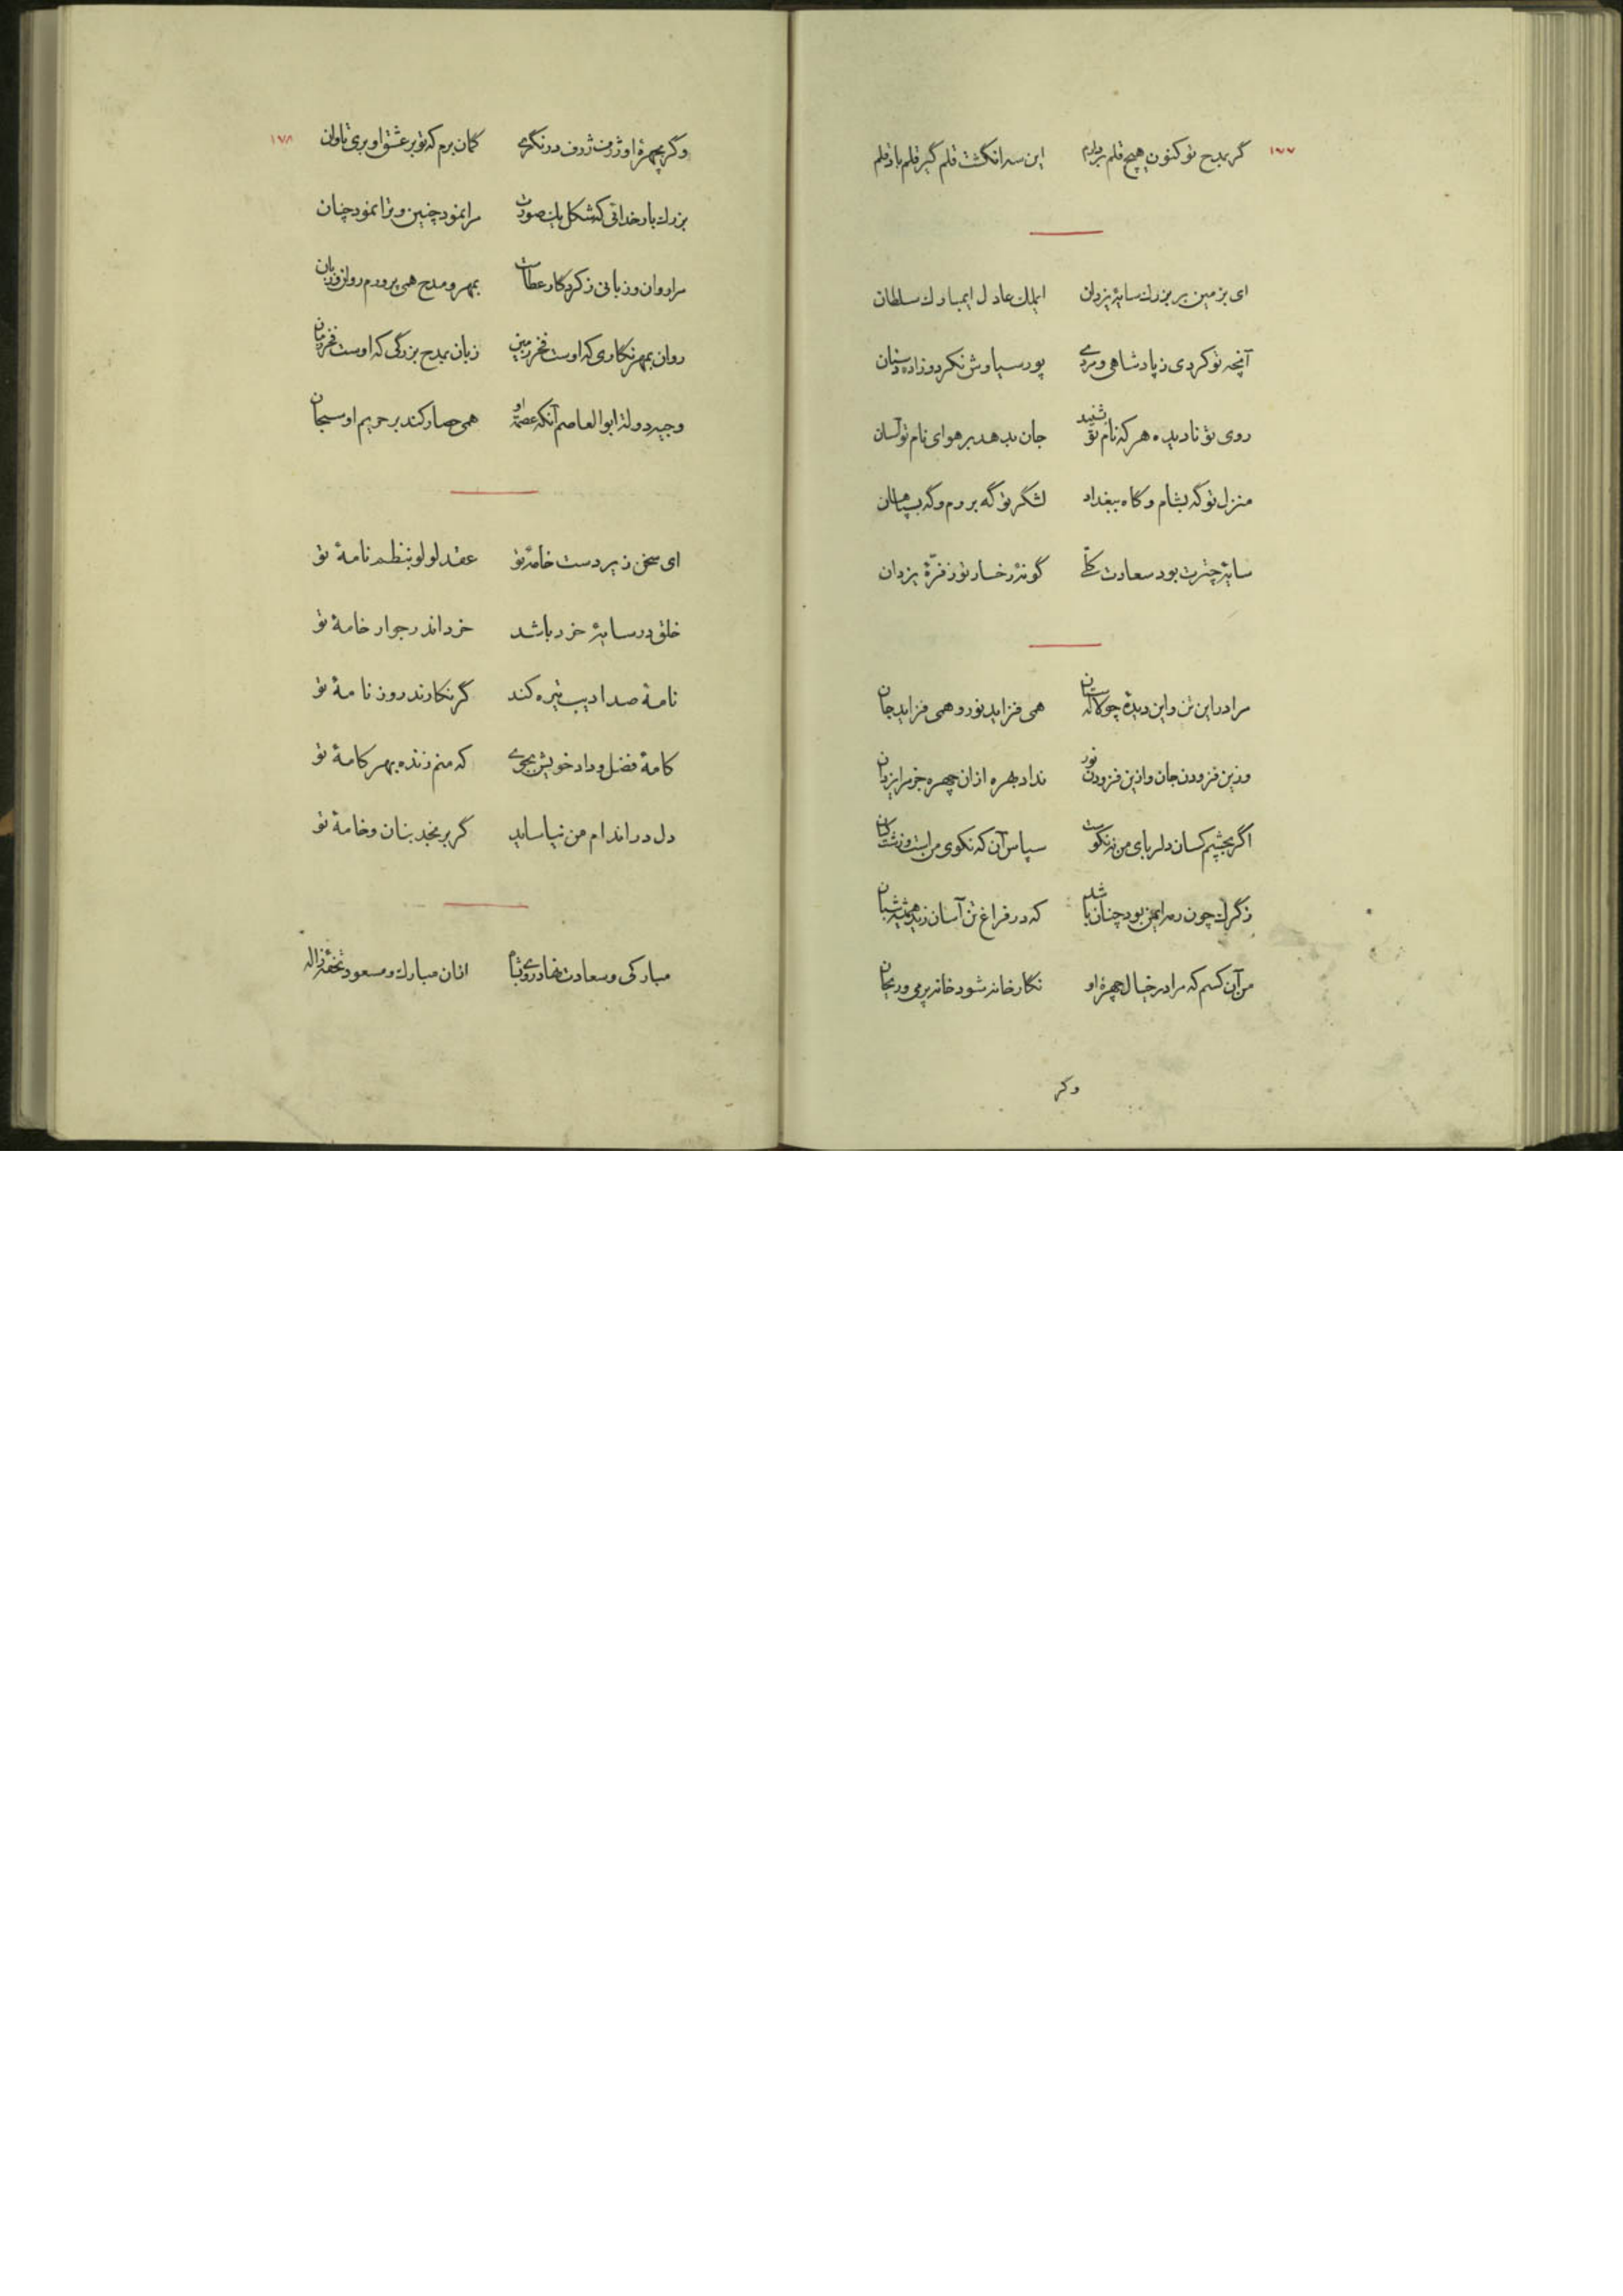 ۱۷۷
گر بمدح تو کنون هیچ قلم بردارم این سر انگشت قلم گیر قلم باد قلم
ای بزمین بر بزرك سایۀ یزدان ایملك عادل ایمبارك سلطان
آنچه تو کردی ز پادشاهی و مردی پور سیاوش نکرد و زاده دستان
روی تو نادیده هر که نام تو بشنید جان بدهد بر هوای نام تو آسان
منزل تو گه بشام و گاه ببغداد لشگر تو گه بروم و گه بسپاهان
سایۀ چترت بود سعادت کلی گونۀ رخسار تو ز فرّۀ یزدان
مرا در این تن و این دیدۀ چو لالستان همی فزاید نور و همی فزاید جان
وزین فزودن جان وازین فزودن نور نداد بهره ازان چهره جز مرا یزدان
اگر بچشم کسان دلربای من نه نکوست سپاس آن که نکوی من است و زشت کسان
ز گرك چون رمه ایمن بود چنان باشد که در فراغ تن آسان زید همیشه شبان
من آن کسم که مرا در خیال چهرۀ او نگار خانه شود خانه پر می و ریحان
وگر
۱۷۸
وگر بچهرۀ او ژرف ژرف در نگری گمان برم که تو بر عشق او بری تاوان
بزرك بار خدائی که شکل یك صورت مرا نمود چنین و ترا نمود چنان
مرا روان و زبانی ز کردگار عطاست بمهر و مدح همی پرورم روان و زبان
روان بمهر نگاری که اوست فخر زمین زبان بمدح بزرگی که اوست فخر زمان
وجیه دولة ابوالعاصم آنکه عصمة او همی حصار کند بر حریم او سبحان
ای سخن زیر دست خامۀ تو عقد لولو بنظم نامۀ تو
خلق در سایۀ خرد باشد خرد اندر جوار خامۀ تو
نامۀ صد ادیب تیره کند گر نگارند روز نامۀ تو
کامۀ فضل و داد خویش بجوی که منم زنده بهر کامۀ تو
دل در اندام من نیاساید گر برنجد بنان و خامۀ تو
مبارکی و سعادت نهاد روی بما ازان مبارك و مسعود تحفۀ زاله